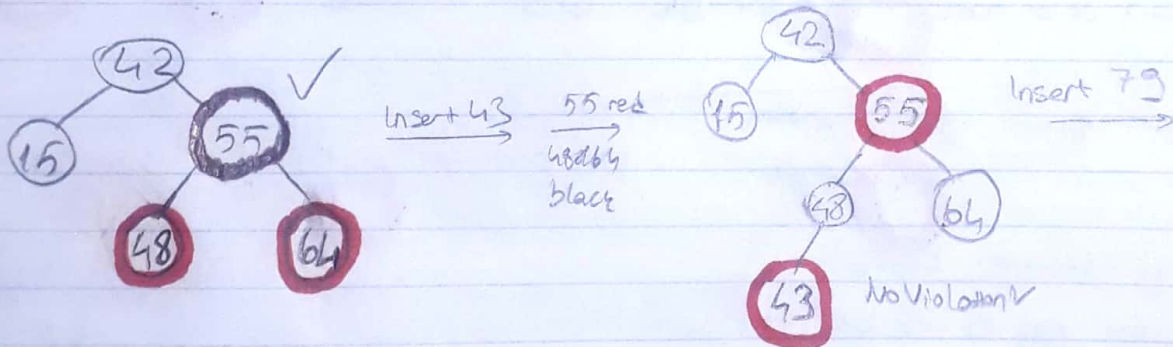 42
15
55 ✓
48
64
Insert 43
55 red
48&64
black
42
15
55
48
64
43
No Violation ✓
Insert 79